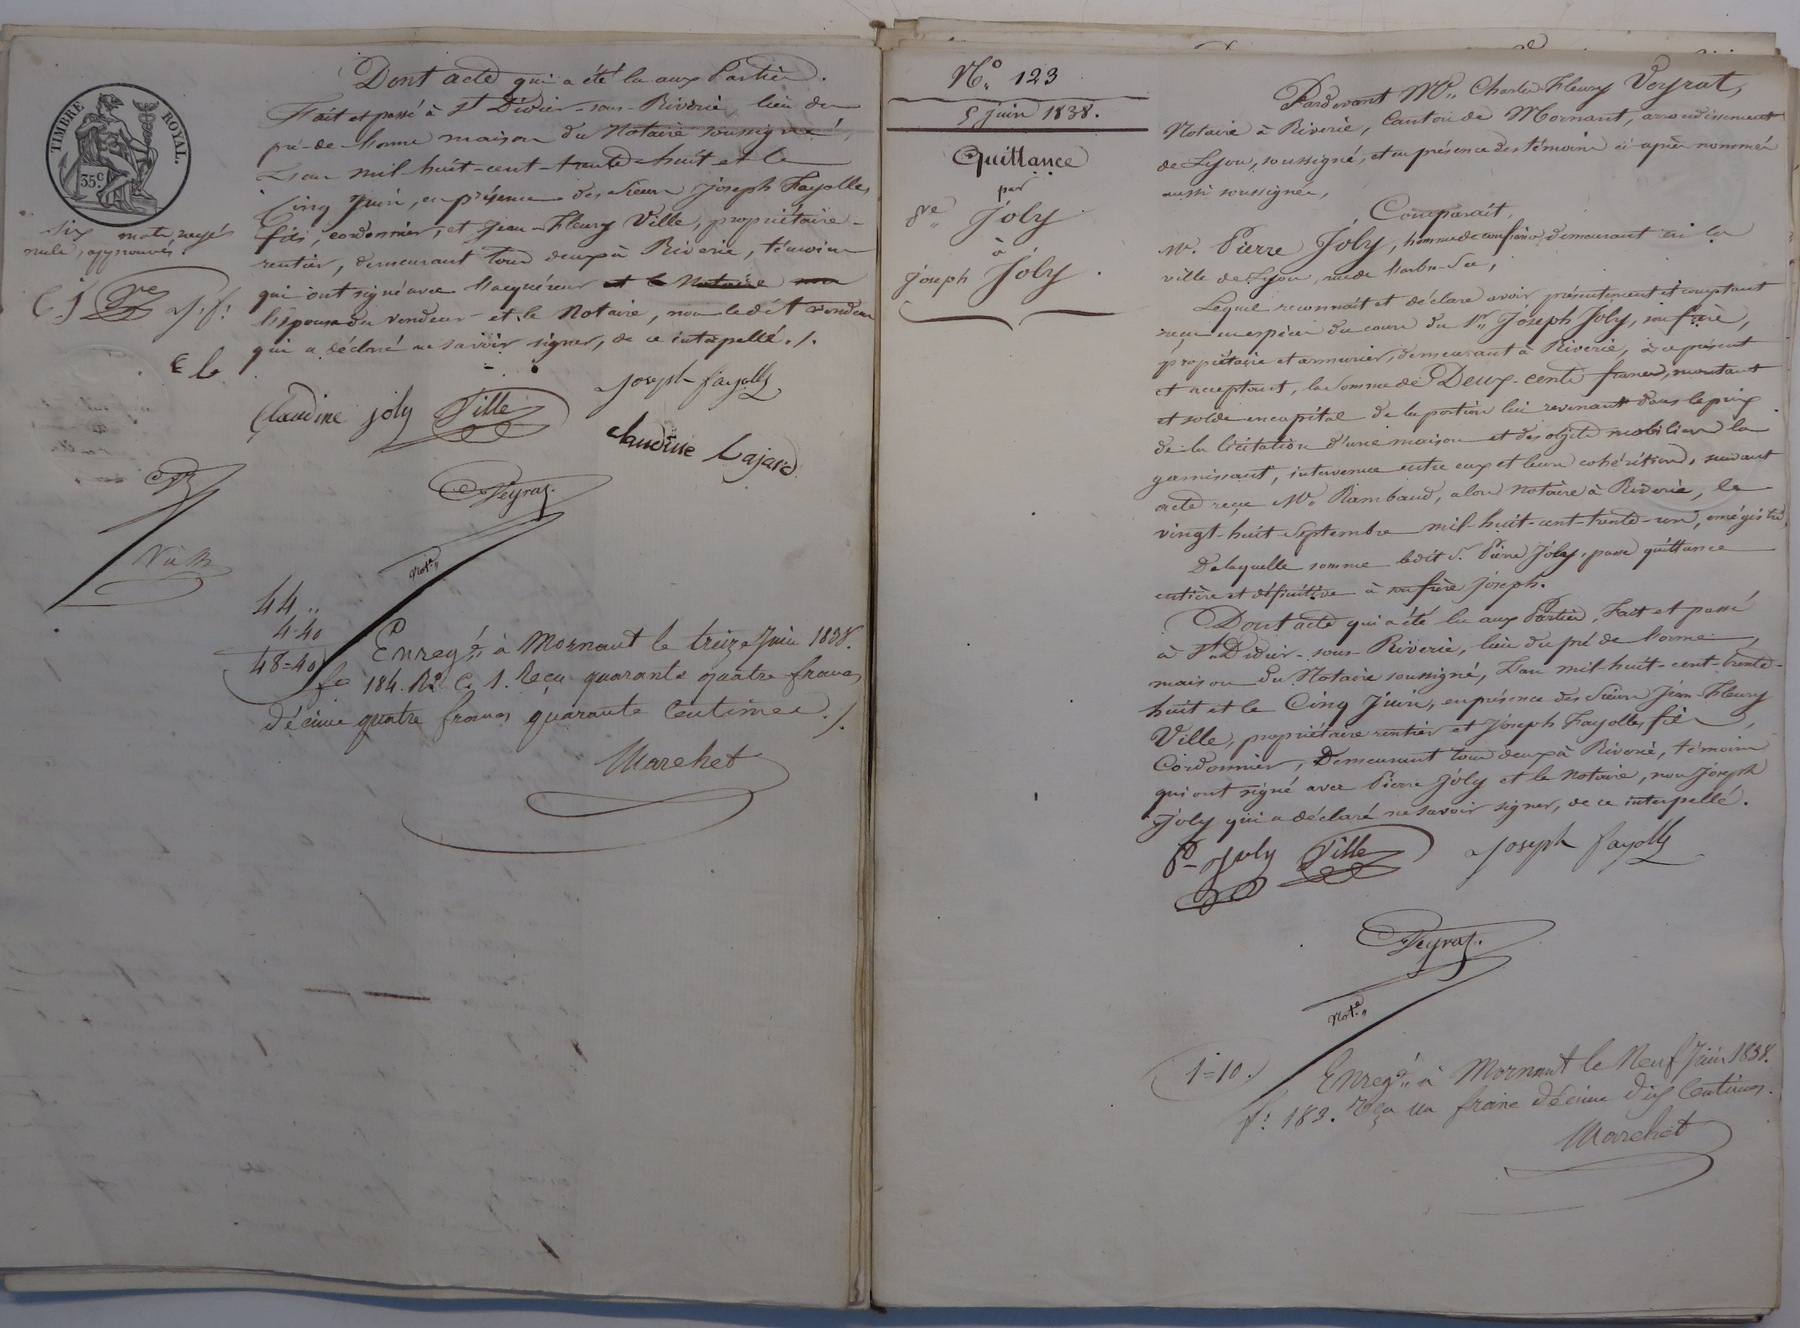 TIMBRE ROYAL.
35c.
Dont acte qui a été lu aux Parties.
Fait et passé à St Didier-sous-Riverie, lieu du
pré-de-lorme maison du Notaire soussigné,
L'an mil huit-cent-trente-huit et le
Cinq Juin, en présence des sieurs Joseph Fayolles
fils, cordonnier, et Jean-Fleury Ville, propriétaire-
rentier, demeurant tous deux à Riverie, témoins
qui ont signé avec l'acquéreur et le Notaire
l'épouse du vendeur et le Notaire, non ledit vendeur
qui a déclaré ne savoir signer, de ce interpellé./.
six mots rayés
nuls, approuvés.
C. J. J. f.
Claudine joly Ville Joseph fayolle
Claudine Lajard
Veyrat.
Not.re
44 "
4-40
48=40
Enreg.é à Mornant le treize Juin 1838.
fo 184. Ro C. 1. Reçu quarante quatre francs
décime quatre francs quarante Centimes./.
Marchet
No. 123
5 Juin 1838.
Quittance
par
Pre Joly
à
Joseph Joly.
Pardevant Me. Charles Fleury Veyrat,
Notaire à Riverie, Canton de Mornant, arrondissement
de Lyon, soussigné, et en présence des témoins ci-après nommés
aussi soussignés,
Comparait,
Mr. Pierre Joly, homme de confiance, demeurant en la
ville de Lyon, rue
Lequel reconnaît et déclare avoir présentement et comptant
reçu en espèces du cours du Sr. Joseph Joly, son frère,
propriétaire et armurier, demeurant à Riverie, à ce présent
et acceptant, la somme de Deux-cents francs, montant
et solde en capital de la portion lui revenant dans le prix
de la licitation d'une maison et des objets mobiliers la
garnissant, intervenue entre eux et leurs cohéritiers, suivant
acte reçu Me. Rambaud, alors Notaire à Riverie, le
vingt-huit Septembre mil-huit-cent-trente-un, enregistré.
De laquelle somme ledit Sr. Pierre Joly, passe quittance
entière et définitive à son frère Joseph.
Dont acte qui a été lu aux Parties, Fait et passé
à St. Didier-sous-Riverie, lieu du pré de lorme,
maison du Notaire soussigné, L'an mil-huit-cent-trente-
huit et le Cinq Juin, en présence des sieurs Jean-Fleury
Ville, propriétaire rentier et Joseph Fayolles fils,
Cordonnier, Demeurant tous deux à Riverie, témoins
qui ont signé avec Pierre Joly et le Notaire, non Joseph
Joly qui a déclaré ne savoir signer, de ce interpellé.
P. Joly Ville Joseph fayolle
Veyrat.
Not.e
1=10.
Enreg.é à Mornant le Neuf Juin 1838.
fo. 183. reçu un franc décime dix Centimes.
Marchet